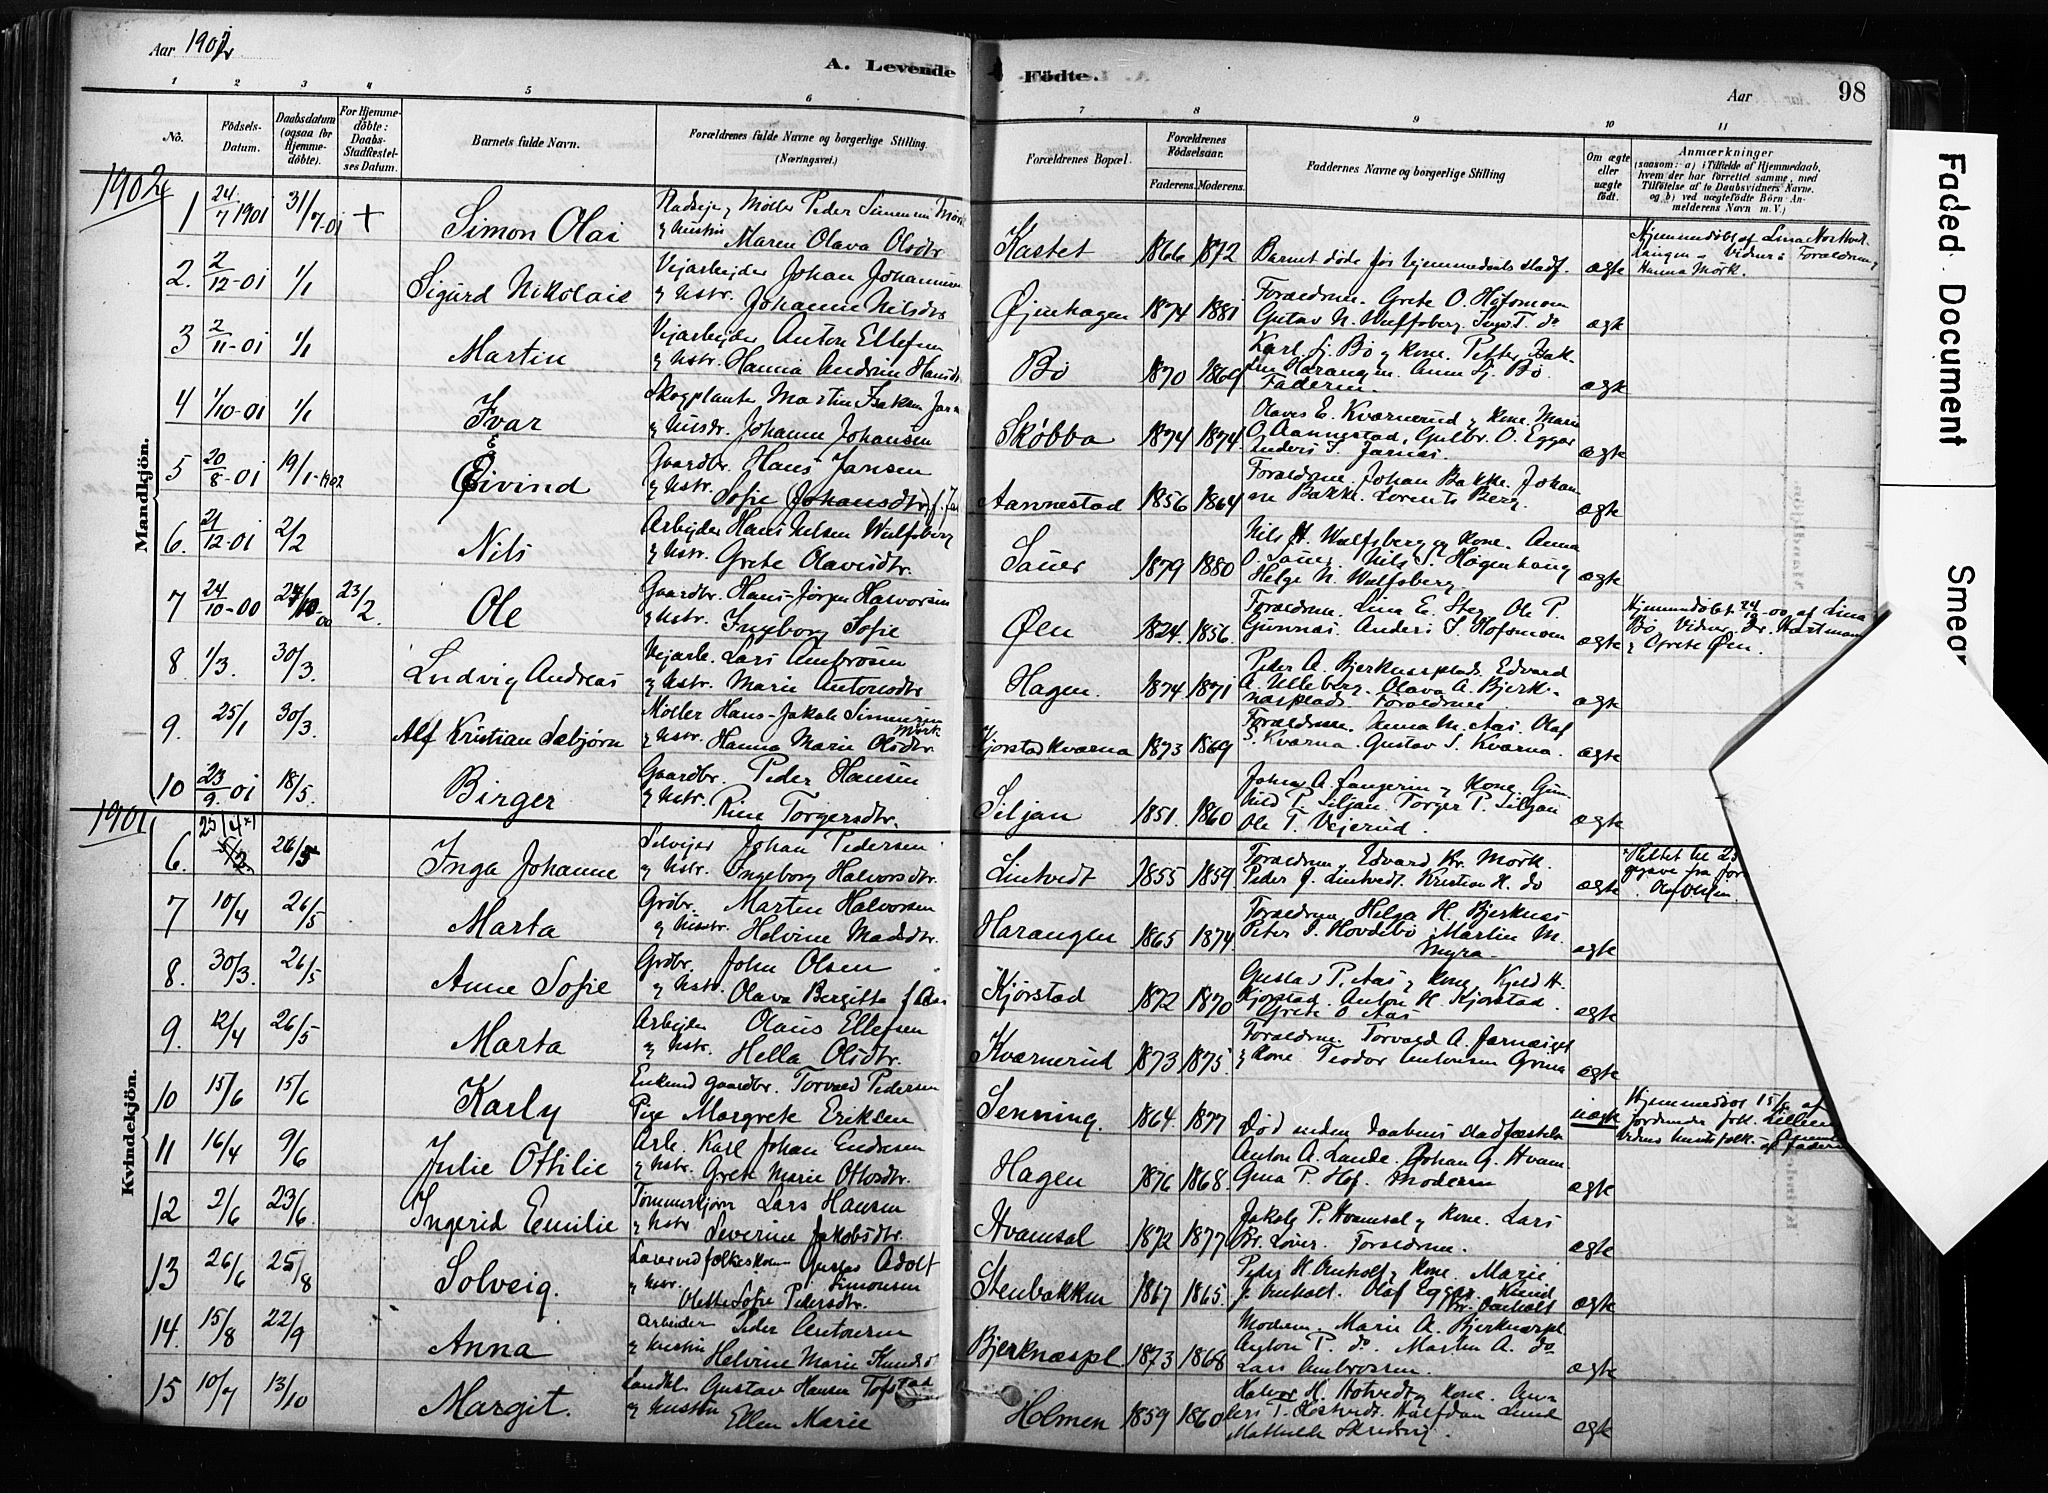 Aar 1902
A. Levende Födte.
Aar 98
1 2 3 4 5 6 7 8 9 10 11
No. Födsels-Datum. Daabsdatum (ogsaa for Hjemme-döbte). For Hjemme-döbte: Daabs-Stadfæstel-ses Datum. Barnets fulde Navn. Forældrenes fulde Navne og borgerlige Stilling. (Næringsvei.) Forældrenes Bopæl. Forældrenes Födselsaar. Faderens. Moderens. Faddernes Navne og borgerlige Stilling Om ægte eller uægte födt. Anmærkninger (saasom: a) i Tilfælde af Hjemmedaab, hvem der har forrettet samme, med Tilföielse af to Daabsvidners Navne. og b) ved uægtefödte Börn An-melderens Navn m. V.)
1902
Mandkjön.
1 24/7 1901 31/7-01 + Simon Olai
Møller Peder Simensen
Maren Olava Olsdtr
Kastet 1866 1872 Barnet døde før hjemmedaabs stadf. ægte
Hanna Mørk.
2. 2/12-01 1/1 Sigurd Nikolai
Vejarbejder Johan Johannesen
og hstr. Johanne Nilsdtr
Øjenhagen 1874 1881 Forældrene. Grete O. Hofsmoen
Gustav N. Wulfsberg. do ægte
3 2/11-01 1/1 Martin
Vejarbejder Anton Ellefsen
og hstr. Hanna Andrine Hansdr
Bö 1870 1869 Karl Bö og kone. Petter
Harangen. Bö
Faderen. ægte
4 1/10-01 1/1 Ivar
Skogplanter Martin
Johanne Johansen
Skøbba 1874 1874 Olaves E. Kværnerud og kone. Marie
O. Aannestad, Gulbr. O. Eggar
Anders Jarnæs. ægte
5 20/8-01 19/1-1902 Eivind
Gaardbr. Hans Jansen
og hstr. Sofie (Johansdtr)
Aannestad 1856 1864 Forældrene. Johan Bakke. Johan-
ne Bakke. Lorents Berg. ægte
6. 21/12-01 2/2 Nils
Arbejder Hans Nilsen Wulfsberg
og hstr. Grete Olavesdtr.
Sauer 1879 1880 Nils H. Wulfsberg og kone. Anna
O. Sauer. Nils S. Høgenhaug
Helge N. Wulfsberg ægte
7 24/10-00 24/10-00 23/2. Ole
Gaardbr. Hans-Jørgen Halvorsen
og hstr. Ingeborg Sofie
Øen 1824. 1856. Forældrene. Lina E. Ole P.
Gunnæs. Anders S. Hofsmoen ægte
Hjemmedøbt 24/10-00 af Lina
Bö Vidner Dr. Hartmann
og Grete Øen.
8. 1/3. 30/3. Ludvig Andreas
Vejarb. Lars Ambrosen
og hstr. Marie Antonsdtr
Hagen. 1874 1871 Peder A. Bjerknæsplads. Edvard
A. Ulleberg. Olava A. Bjerk-
næsplads Forældrene ægte
9. 25/1 30/3. Alf Kristian Sæbjørn
Møller Hans-Jakob Simensen Mørk
og hstr. Hanna Marie Olsdtr.
Kjørstadkværna 1873 1869 Forældrene. Anna M. Aas. Olaf
S. Kværna. Gustav S. Kværna. ægte
10 23/9.01 18/5. Birger
Gaardbr. Peder Hansen
og hstr. Rine Torgersdtr.
Siljan 1851. 1860 og kone. Gun-
hild P. Siljan. Torger P. Siljan
Ole T. Vejerud. ægte
1901
Kvindekjön.
6. 25/4 x) 26/5 Inga Johanne
Selvejer Johan Pedersen
og hstr. Ingeborg Halvorsdtr.
Lintvedt 1855 1859 Forældrene, Edvard Kr. Mørk.
Peder J. Lintvedt. Kristian H. do ægte
Rettet til 25
7 10/4 26/5 Marta
Grdbr. Martin Halvorsen
og hustr. Helvine Madsdtr.
Harangen 1865 1874 Forældrene, Helga H. Bjerknæs
Peter S. Hovdebö Martin M.
Myra. ægte
8. 30/3. 26/5 Anne Sofie
Grdbr. John Olsen
og hstr. Olava Bergitte f. Aas
Kjørstad 1872 1870 Gustav P. Aas og kone Kjeld H.
Kjørstad. Anton H. Kjørstad.
Grete O Aas ægte
9. 12/4 26/5 Marta
Arbejder Olaus Ellefsen
og hstr. Hella Olsdtr.
Kværnerud 1873 1875 Forældrene. Torvald A. Jarnæseget
og kone Teodor Antonsen ægte
10 15/6 15/6 Karly
Enkemd gaardbr. Torvald Pedersen
Pige Margrete Eriksen
Senning. 1864. 1877 Død inden daabens stadfæstelse uægte
Hjemmedøbt 15/6 af
11 16/4 9/6 Julie Ottilie
Arb. Karl Johan Endresen
og hstr. Grete Marie Ottosdtr.
Hagen 1876 1868 Anton A. Lande. Johan G. Hvam.
Gina P. Hof. Moderen ægte
12 2/6 23/6. Ingerid Emilie
Tømmerkjører Lars Hansen
og hstr Severine Jakobsdtr.
Hvamsal 1872 1877 Jakob P. Hvamsal og kone. Lars
Br. Forældrene. ægte
13 26/6 25/8 Solveig.
Lærer ved folkeskolen Gustav Adolf Simonsen
og hstr. Olette Sofie Pedersdtr.
Stenbakken 1867 1865. Peder H. Omholt og kone. Marie
J. Omholt. Olaf Eggar. Knud
Kr. Omholt ægte
14. 15/8 22/9 Anna
arbeider Peder Antonsen
og hustru Helvine Marie Knudsd
Bjerknæspl. 1873 1868 Moderen. Marie A. Bjerknæspl.
Anton P. do. Martin A. do
Lars Ambrossen. ægte
15 10/7 13/10 Margit.
Landh. Gustav Hansen Tofstad
og hustru Ellen Marie
Holmen 1859 1860 Halvor H. Hotvedt og kone. An-
ders T. Hotvedt. Halfdan Lund
Mathilde ægte
Faded Document
Smear